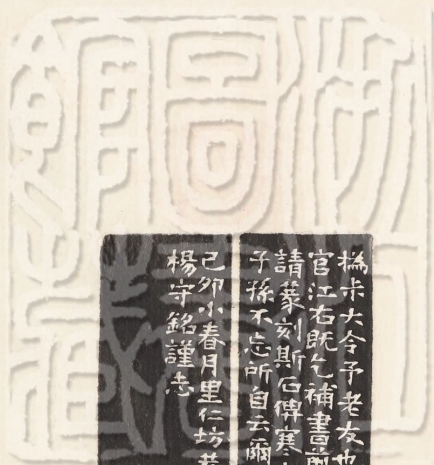 大令予老友也
官江右既乞補書前
請篆刻斯石俾寒
子孫不忘所自云爾
己卯小春月里仁坊
楊守銘謹志